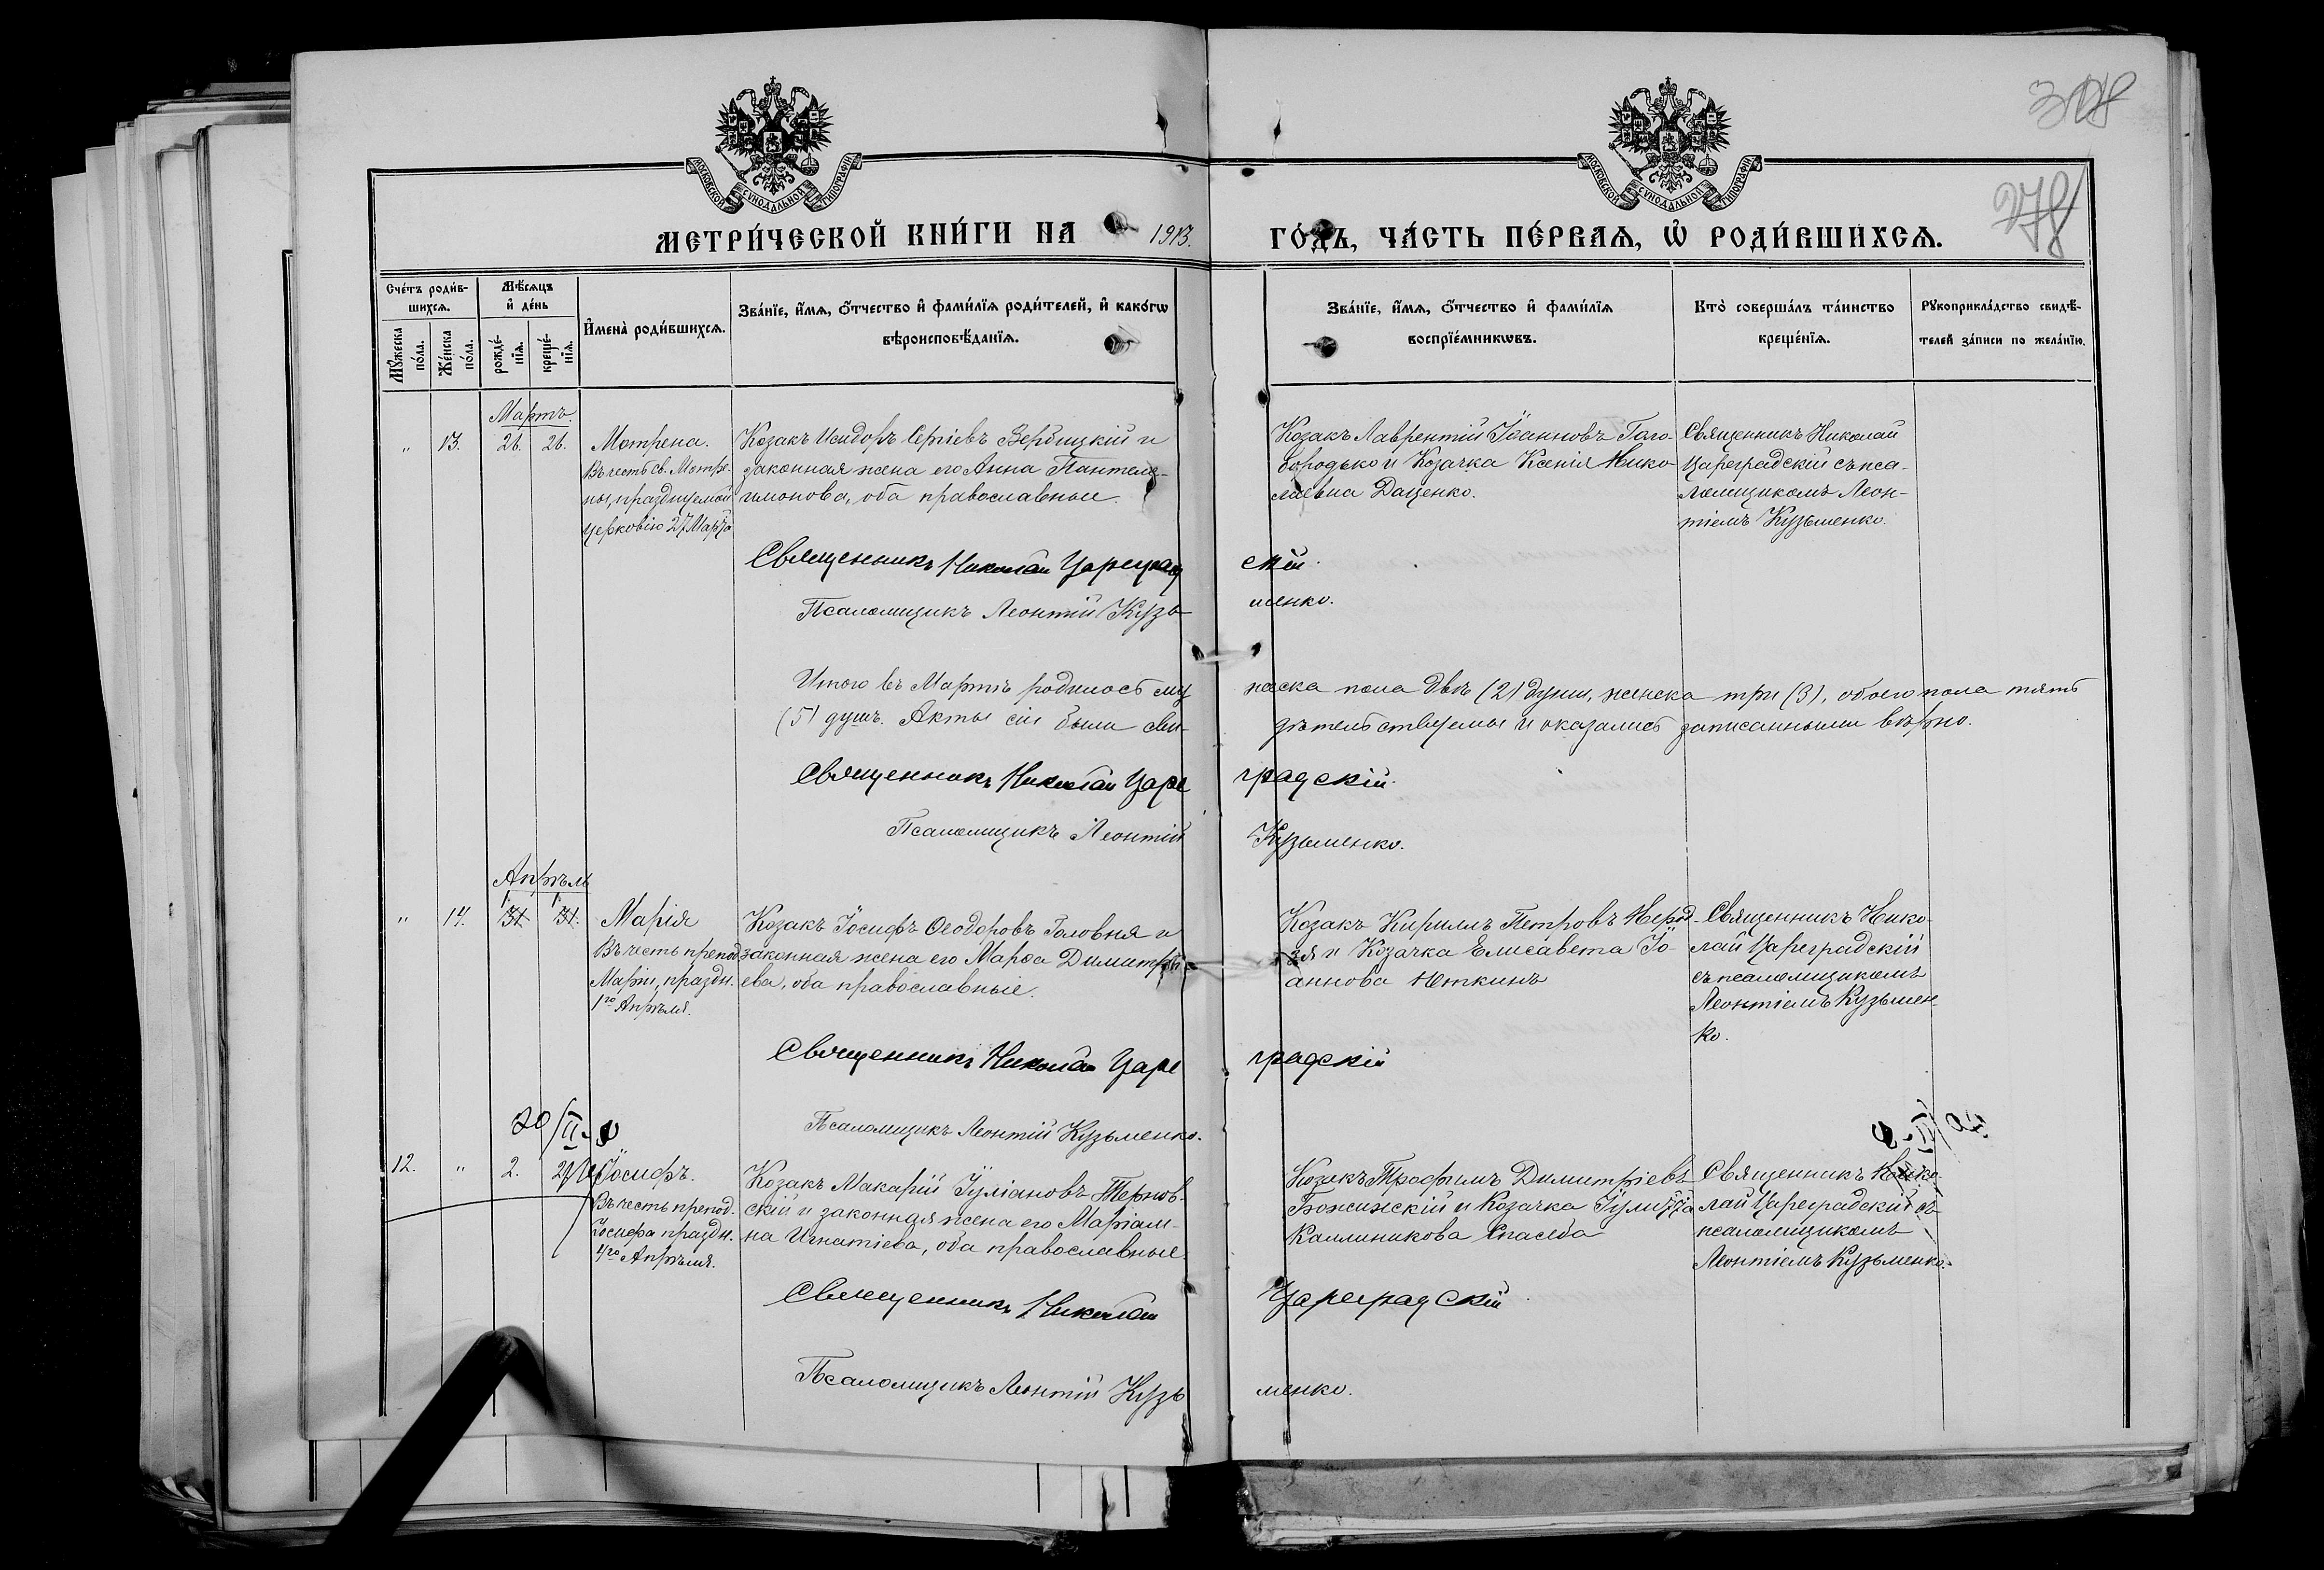 308
278
МОСКОВСКОЙ СУНОДАЛЬНОЙ ТИПОГРАФІИ
МОСКОВСКОЙ СУНОДАЛЬНОЙ ТИПОГРАФІИ
МЕТРИ́ЧЕСКОЙ КНИ́ГИ НА 1913. ГО́ДЪ, ЧА́СТЬ ПЕ́РВАѦ, Ѡ РОДИ́ВШИХСѦ.
Сче́тъ роди́в-
шихсѧ.
Мꙋ́жеска
по́ла.
Же́нска
по́ла.
Мѣ́сѧцъ
и҆ де́нь
рожде́-
нїѧ.
креще́-
нїѧ.
И҆мена̀ роди́вшихсѧ.
Зва́нїе, и҆́мѧ, ѻ҆́тчество и҆ фами́лїѧ роди́телей, и҆ како́гѡ
вѣроисповѣ́данїѧ.
Зва́нїе, и҆́мѧ, ѻ҆́тчество и҆ фами́лїѧ
воспрїе́мникѡвъ.
Кто̀ соверша́лъ та́инство
креще́нїѧ.
Рꙋкоприкла́дство свидѣ́-
телей за́писи по жела́нїю.
Мартъ.
" 13. 26. 26. Мотрена.
Въ честь св. Мотре-
ны, празднуемой
церковію 27 Марта
Козакъ Исидоръ Сергіевъ Вербицкій и
законная жена его Анна Пантеле-
имонова, оба православные.
Козакъ Лаврентій Іоанновъ Голо-
бородько и Козачка Ксенія Нико-
лаевна Даценко.
Священникъ Николай
Цареградскій съ пса-
ломщикомъ Леон-
тіемъ Кузьменко.
Священникъ Николай Цареградскій.
Псаломщикъ Леонтій Кузьменко.
Итого въ Мартѣ родилось мужеска пола двѣ (2) души, женска три (3), обоего пола пять
(5) душъ. Акты сіи были свидѣтельствуемы и оказались записанными вѣрно.
Священникъ Николай Цареградскій.
Псаломщикъ Леонтій Кузьменко.
Апрѣль
1. 1.
" 14. 31. 31. Марія
Въ честь препод.
Маріи, праздн.
1го Апрѣля.
Козакъ Іосифъ Ѳеодоровъ Головня и
законная жена его Марѳа Димитрі-
ева, оба православные.
Козакъ Кириллъ Петровъ
и Козачка Елисавета Іо-
аннова
Священникъ Нико-
лай Цареградскій
съ псаломщикомъ
Леонтіемъ Кузьмен-
ко.
Священникъ Николай Цареградскій
Псаломщикъ Леонтій Кузьменко.
20/II
12. " 2. Іосифъ.
Въ честь препод.
Іосифа праздн.
4го Апрѣля.
Козакъ Макарій Іуліановъ Тернов-
скій и законная жена его Маріам-
на Игнатіева, оба православные.
Козакъ Трофимъ Димитріевъ
и Козачка
Каллиникова
Священникъ Нико-
лай Цареградскій съ
псаломщикомъ
Леонтіемъ Кузьменко.
Священникъ Николай Цареградскій
Псаломщикъ Леонтій Кузьменко.